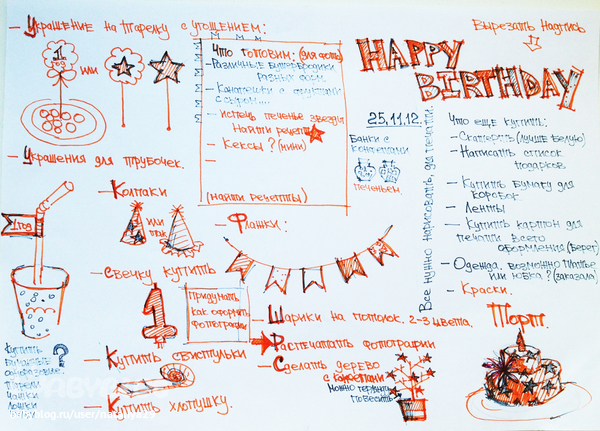 — Украшение на тарелку с угощением:
1 год
или
— Украшения для трубочек.
1 год
— Колпаки
1 или так
— Свечку купить
1
Придумать
как оформить
фотографии
— Купить свистульки
— Купить хлопушку.
Купить
бумажные
одноразовые
тарелки
чашки
ложки
?
Что готовим: (для фото)
— Различные бутербродики
разных форм.
— Канапешки с фруктами
с сыром....
— испечь печенье звезды
Найти рецепт
— Кексы? (мини)
—
(найти рецепты)
— Флажки:
— Шарики на потолок. 2-3 цвета.
— Распечатать фотографии
— Сделать дерево
с конфетами
можно гирлянду
повесить
Вырезать надпись
HAPPY
BIRTHDAY
25.11.12.
Банки с
конфетами
и
печеньем
Все нужно нарисовать, для печати.
Что еще купить:
— Скатерть (лучше белую)
— Написать список
подарков
— Купить бумагу для
коробок
— Ленты
— Купить картон для
печати всего
оформления (берег)
— Одежда, возможно платье
или юбка? (заказала)
— Краски.
Торт.
babyblog.ru/user/